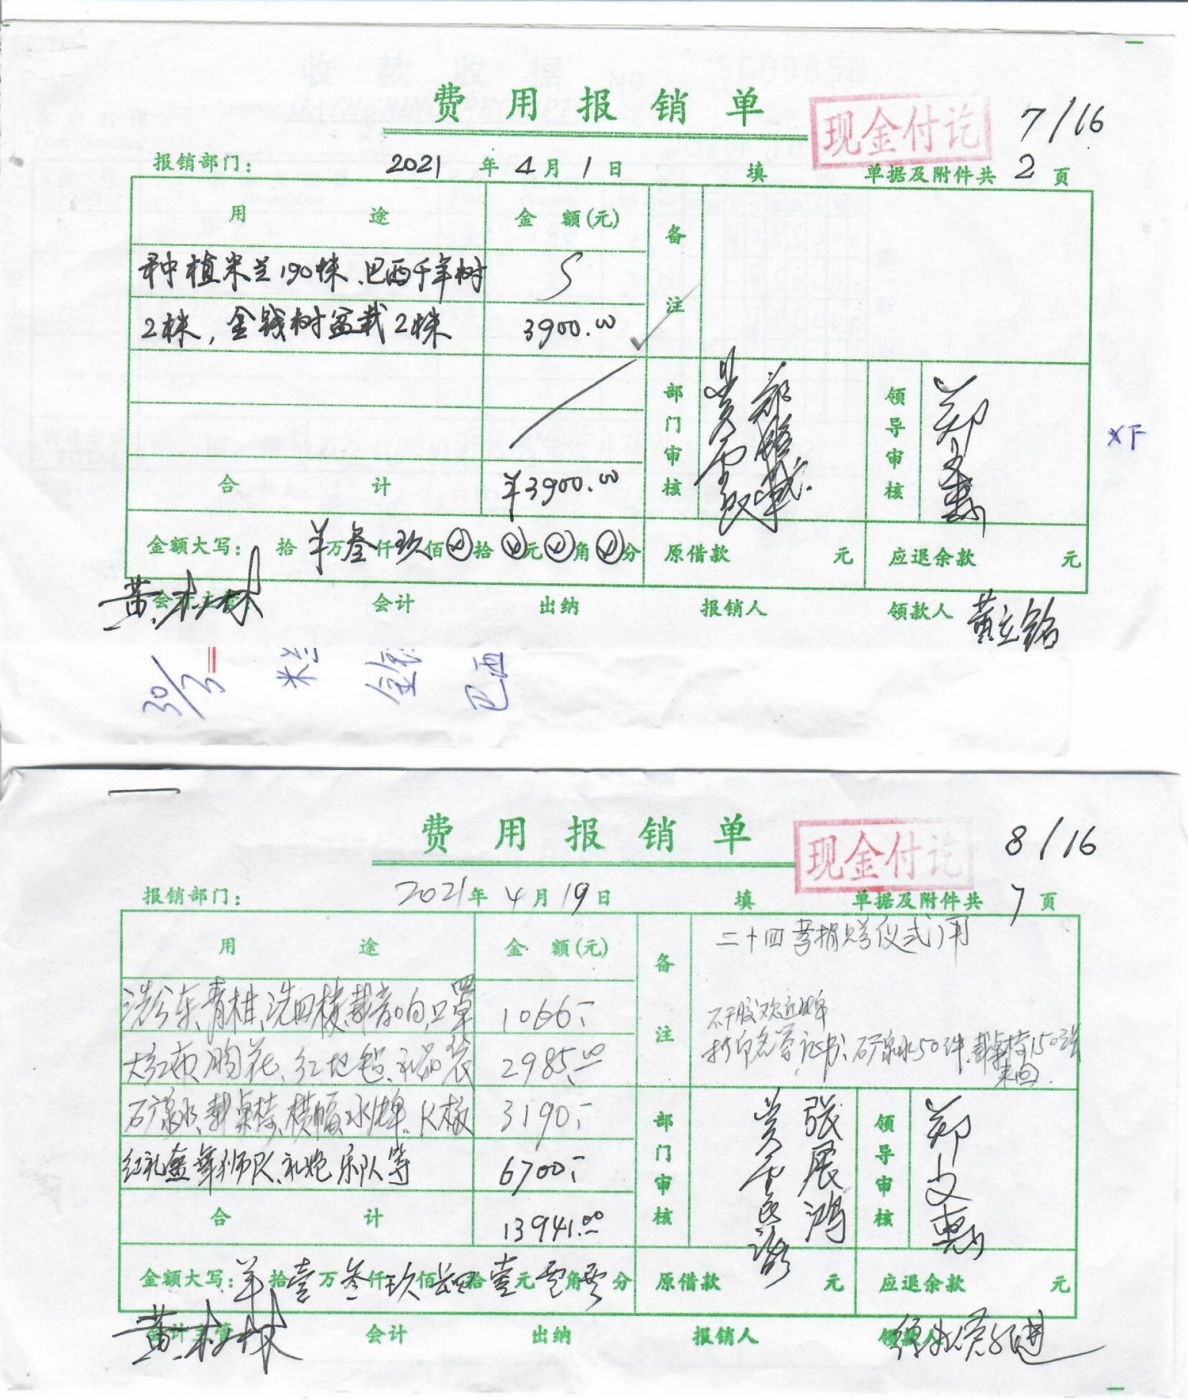 费用报销单
现金付讫
7/16
报销部门：
2021年4月1日
填
单据及附件共2页
用途
金额(元)
备注
种植米兰190株、巴西千年树
2株，金钱树盆栽2株
3900.00
部门审核
领导审核
合计
¥3900.00
金额大写：拾 万叁仟玖佰 拾 元 角 分
原借款 元
应退余款 元
黄
会计
出纳
报销人
领款人
黄立铭
30/3
米兰
金钱
巴西
费用报销单
现金付讫
8/16
报销部门：
2021年4月19日
填
单据及附件共7页
用途
金额(元)
备注
二十四孝捐赠仪式用
1066.-
大红布、胸花、红地毯、礼品袋
2985.00
矿泉水、载桌椅、横幅、水牌、K板
3190.-
红礼盒、舞狮队、礼炮、乐队等
6700.-
打印荣誉证书、矿泉水50件、载桌椅150张
来回
部门审核
张展鸿
领导审核
郑文惠
合计
13941.00
金额大写： 拾壹万叁仟玖佰肆拾壹元零角零分
原借款 元
应退余款 元
黄
会计
出纳
报销人
领款人